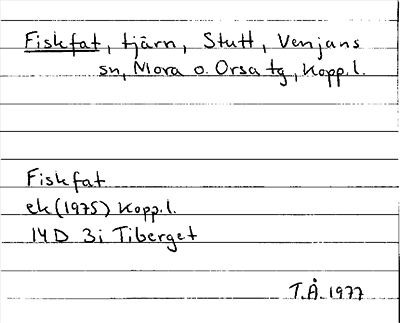 Fiskfat, tjärn, Stutt, Venjans
sn, Mora o. Orsa tg, Kopp.l.
Fiskfat
ek (1975) Kopp.l.
14D 3i Tiberget
T.Å. 1977